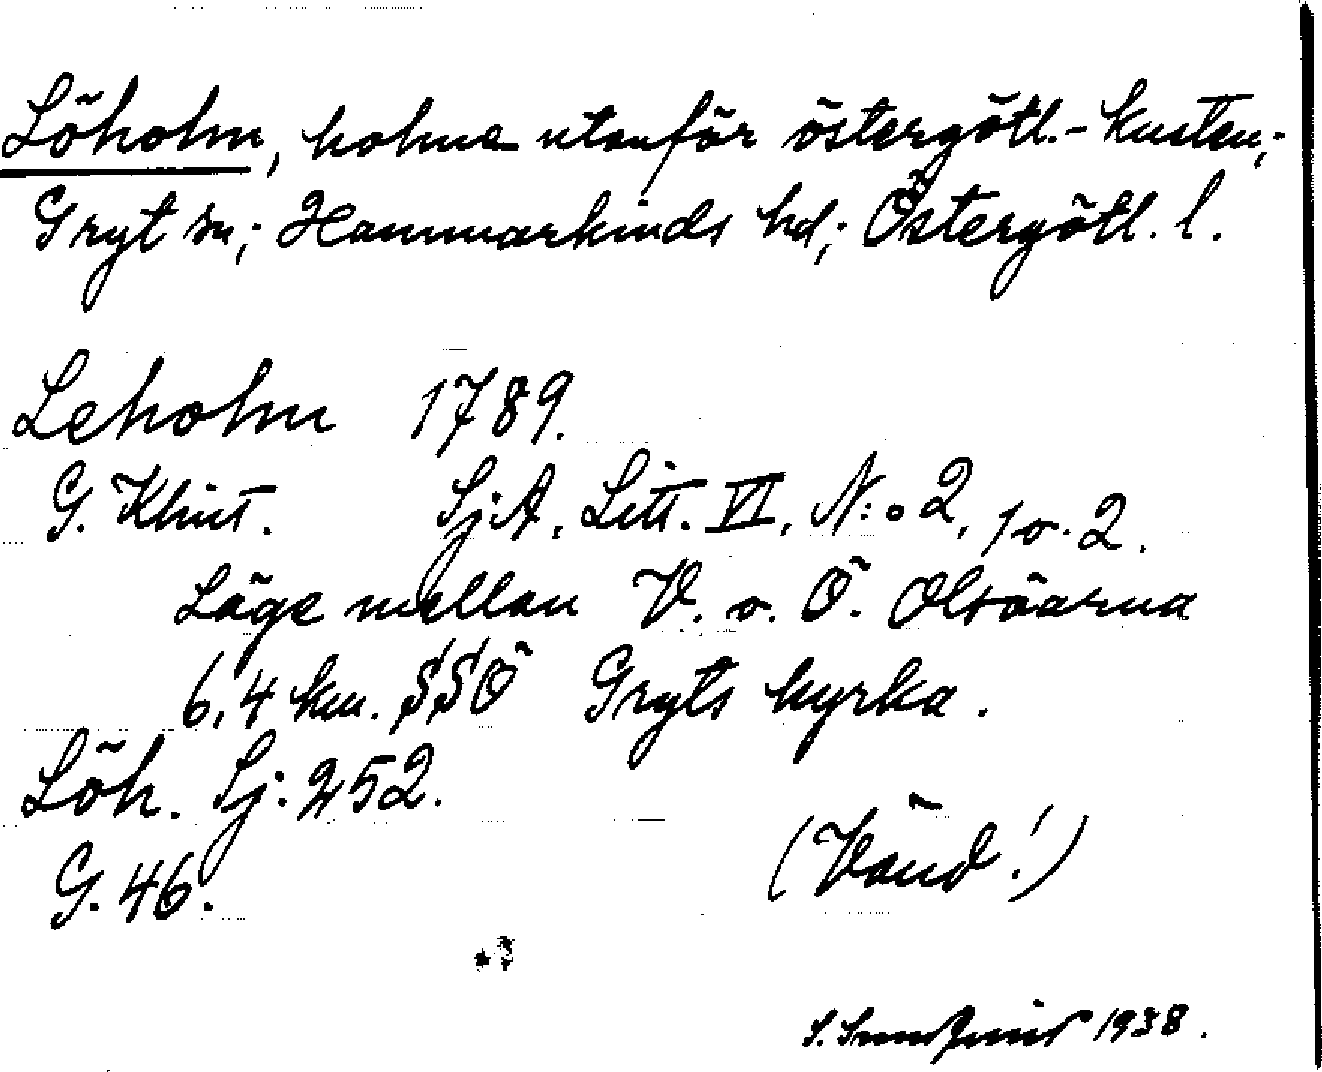 Löholm, holme utanför östergötl.-kusten;-
Gryt sn; Hammarkinds hd; Östergötl. l.
Leholm 1789.
G. Klint. Sj.A, Litt. VI, N:o 2, 1 o. 2.
Läge mellan V. o. Ö. Olsöarna
6,4 km. SSÖ Gryts kyrka.
Löh. Sj: 252.
G. 46.
(Vänd!)
S. 1938.